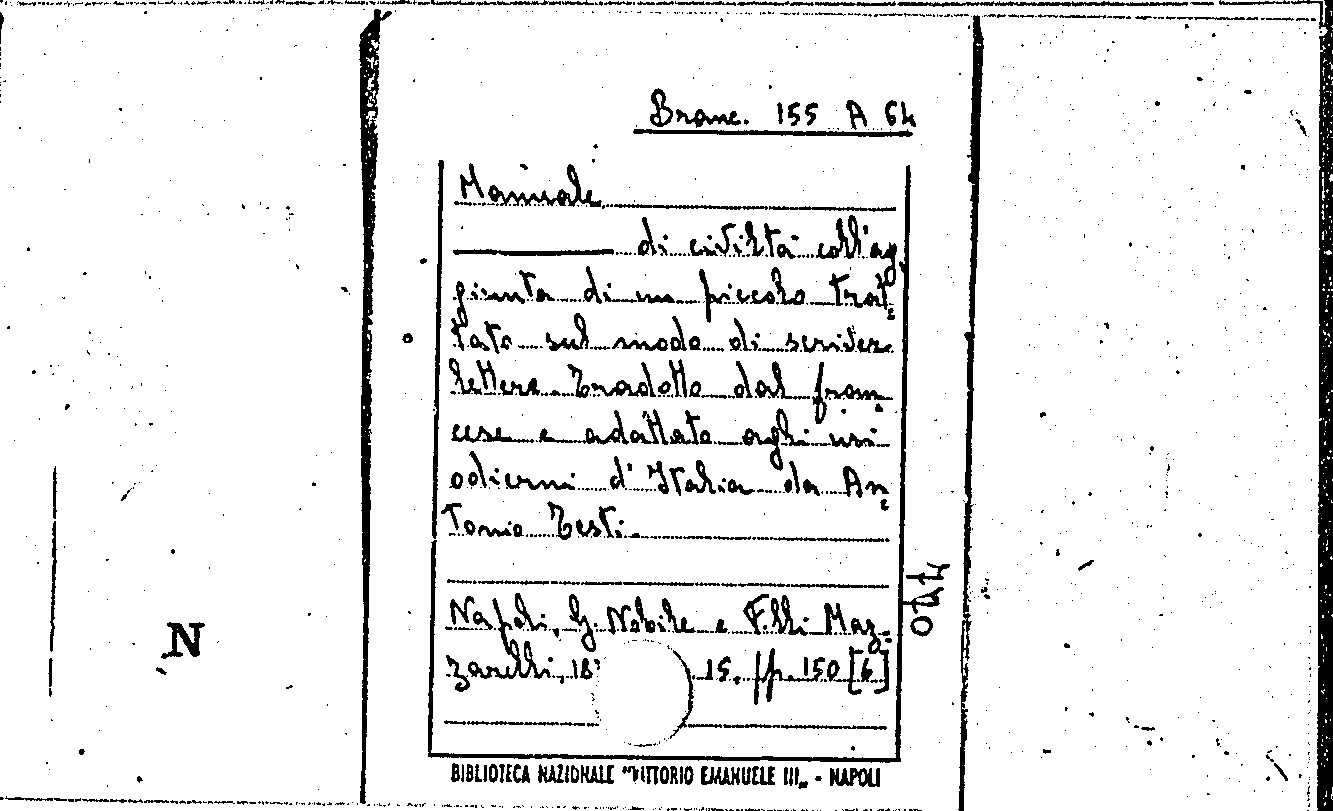 Branc. 155 A 64
Manuale
di civiltà coll'ag
giunta di un piccolo trat=
tato sul modo di scriver
lettere. Tradotto dal fran=
cese e adattato agli usi
odierni d'Italia da An=
tonio Testi.
Napoli, G. Nobile e F.lli Maz=
zarelli, 18 15. pp. 150 [6]
044
N
BIBLIOTECA NAZIONALE "VITTORIO EMANUELE III„ - NAPOLI